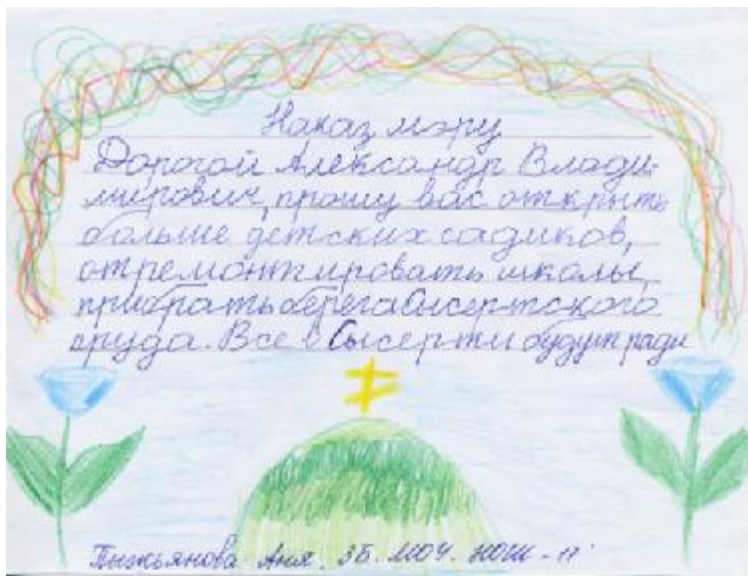 Наказ мэру
Дорогой Александр Влади-
мирович, прошу вас открыть
больше детских садиков,
отремонтировать школы,
прибрать берега Сысертского
пруда. Все в Сысерти будут рады
Аня. 3Б. МОУ. НОШ-17